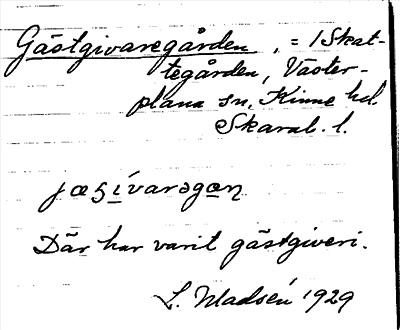 Gästgivaregården, = 1 Skat-
tegården, Väster-
plana sn, Kinne hd.
Skarab. l.
Där har varit gästgiveri.
L. Madsén 1929